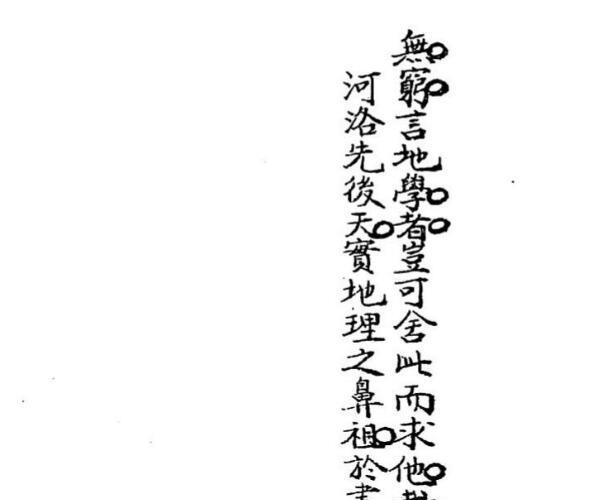 無窮言地學者豈可舍此而求他
河洛先後天實地理之鼻祖於